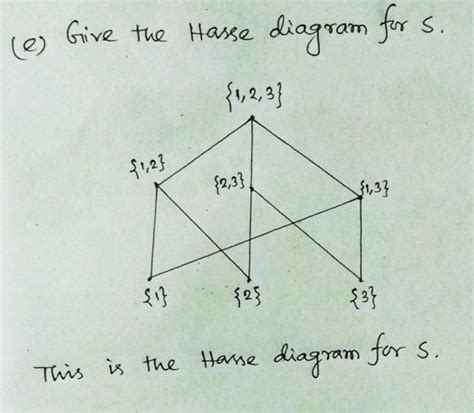 (e) Give the Hasse diagram for S.
{1,2,3}
{1,2}
{2,3}
{1,3}
{1}
{2}
{3}
This is the Hasse diagram for S.